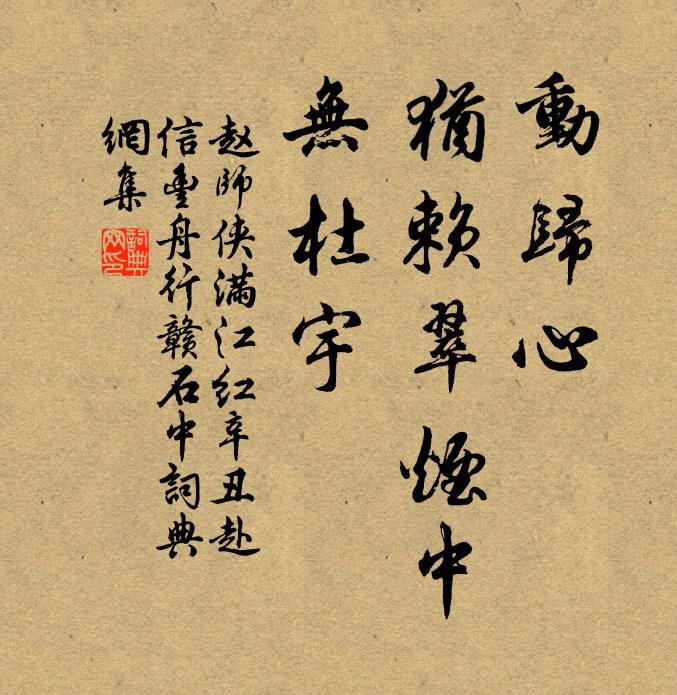 動歸心
猶賴翠煙中
無杜宇
赵師侠滿江红辛丑赴
信豊舟行赣石中詞典
網集
詞典
网印